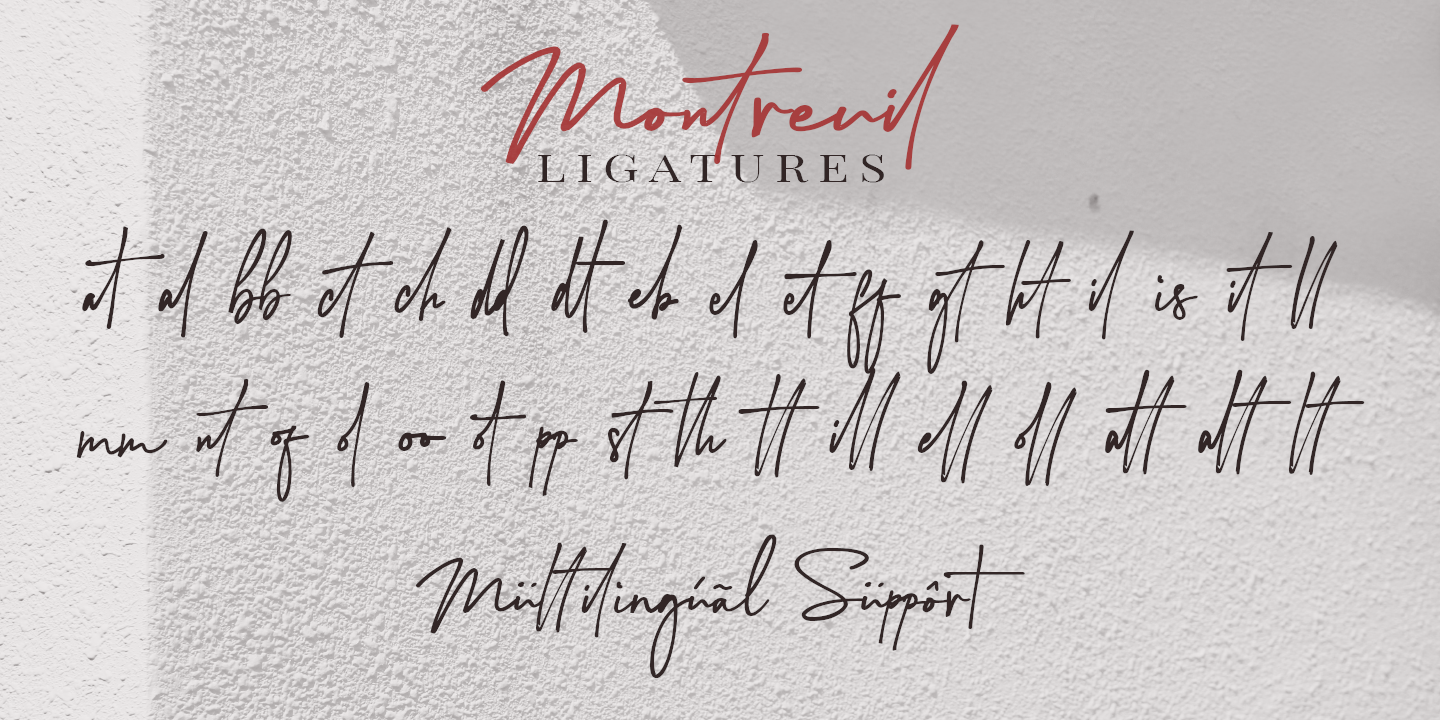 Montreuil
LIGATURES
at al bb ct ch dd dt eb el et ff gt ht il is it ll
mm nt of ol oo ot pp st th tt ill ell oll att alt lt
Mültilingúãl Süppôrt